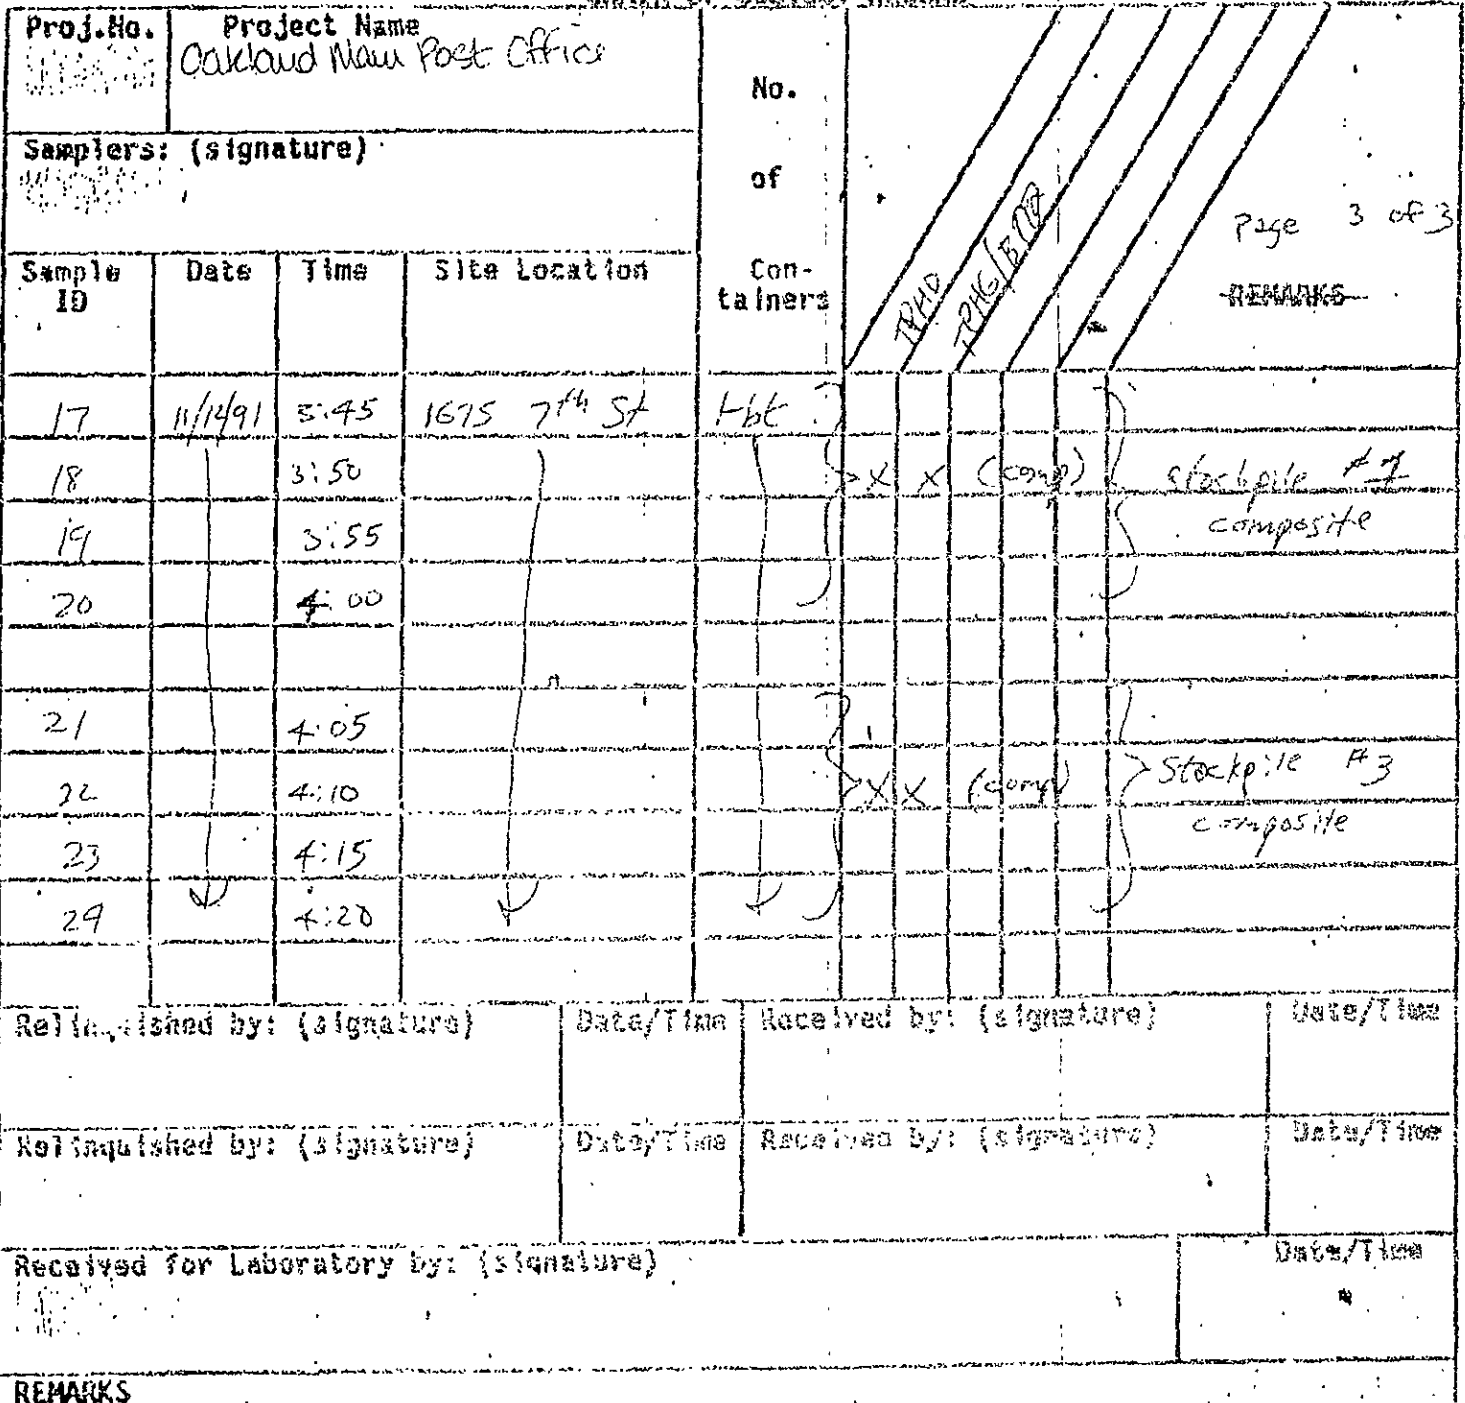 Proj.No. Project Name
Oakland Main Post Office
No.
of
Con-
tainers
Samplers: (signature)
Page 3 of 3
REMARKS
Sample ID Date Time Site Location
TPHD TPHG/BTXE
17 11/14/91 3:45 1675 7th St
18 3:50 X X (comp) stockpile
19 3:55 composite
20 4:00
21 4:05
22 4:10 X X (comp) Stockpile #3
23 4:15 composite
4:20
Relinquished by: (signature) Date/Time Received by: (signature) Date/Time
Relinquished by: (signature) Date/Time Received by: (signature) Date/Time
Received for Laboratory by: (signature) Date/Time
REMARKS